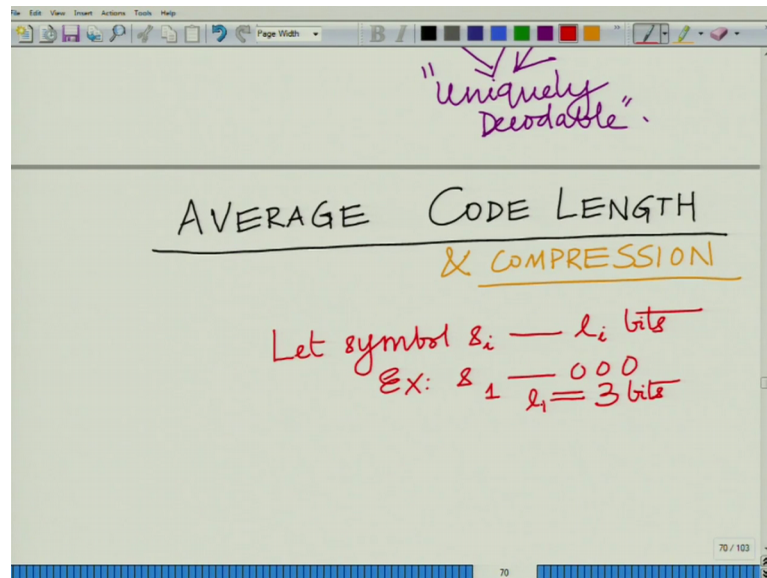 File Edit View Insert Actions Tools Help
Page Width B I
"Uniquely
Decodable".
AVERAGE CODE LENGTH
& COMPRESSION
Let symbol s_i — l_i bits
Ex: s_1 — 000
l_1 = 3 bits
70 / 103
70